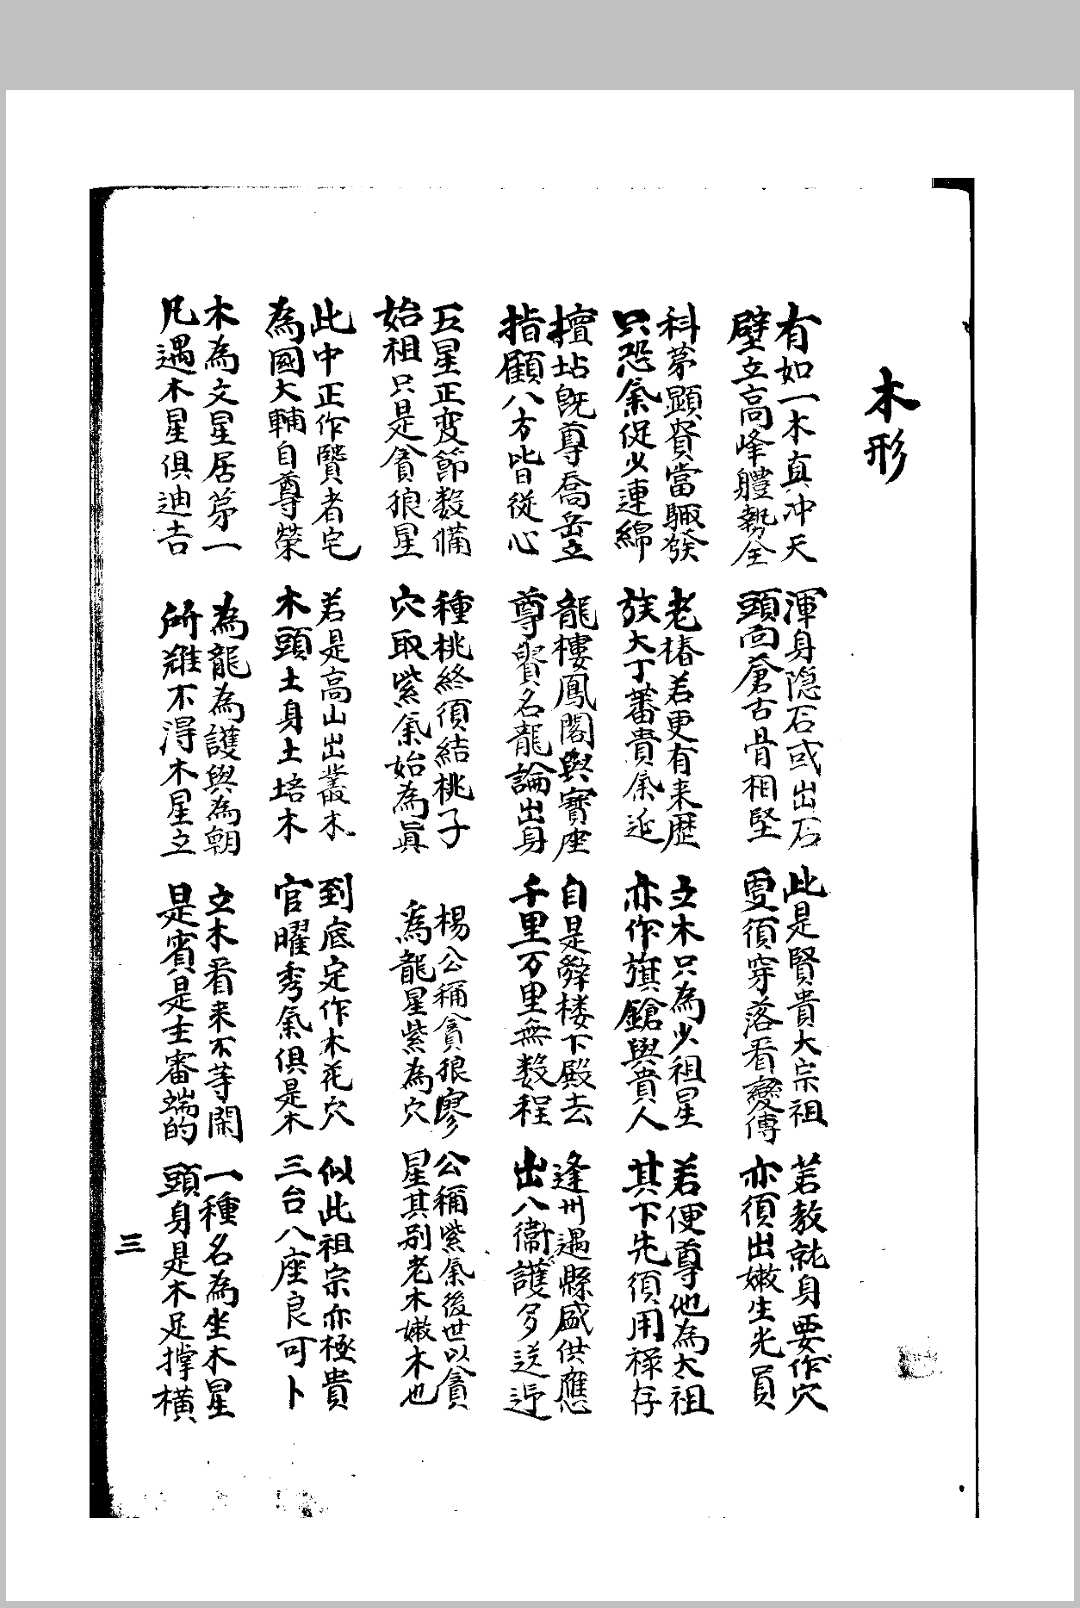 木形
有如一木真冲天
壁立高峰體勢全
渾身隐石或出石
頭面蒼古骨相堅
此是賢貴大宗祖
更須穿落看變傳
若教就身要作穴
亦須出嫩生光員
科苐顯賢當驅發
只恐氣促少連綿
老椿若更有来歷
族大丁蕃貴氣延
立木只為少祖星
亦作旗鎗與貴人
若便尊他為太祖
其下先須用祿存
擅坫既尊喬岳立
指顧八方皆從心
龍樓鳳閣與寶座
尊貴名龍論出身
自是辝楼下殿去
千里万里無数程
逢州遇縣盛供應
出入衞護多送迎
五星正变節数備
始祖只是貪狼星
種桃終須結桃子
穴取紫氣始為眞
楊公稱貪狼廖公稱紫氣後世以貪
為龍星紫為穴星其别老木嫩木也
此中正作賢者宅
為國大輔自尊榮
若是高山出叢木
木頭土身土培木
到底定作木花穴
官曜秀氣俱是木
似此祖宗亦極貴
三台八座良可卜
木為文星居苐一
凡遇木星俱迪吉
為龍為護與為朝
所難不得木星立
立木看来不等閑
是賓是主審端的
一種名為坐木星
頭身是木足撑横
三